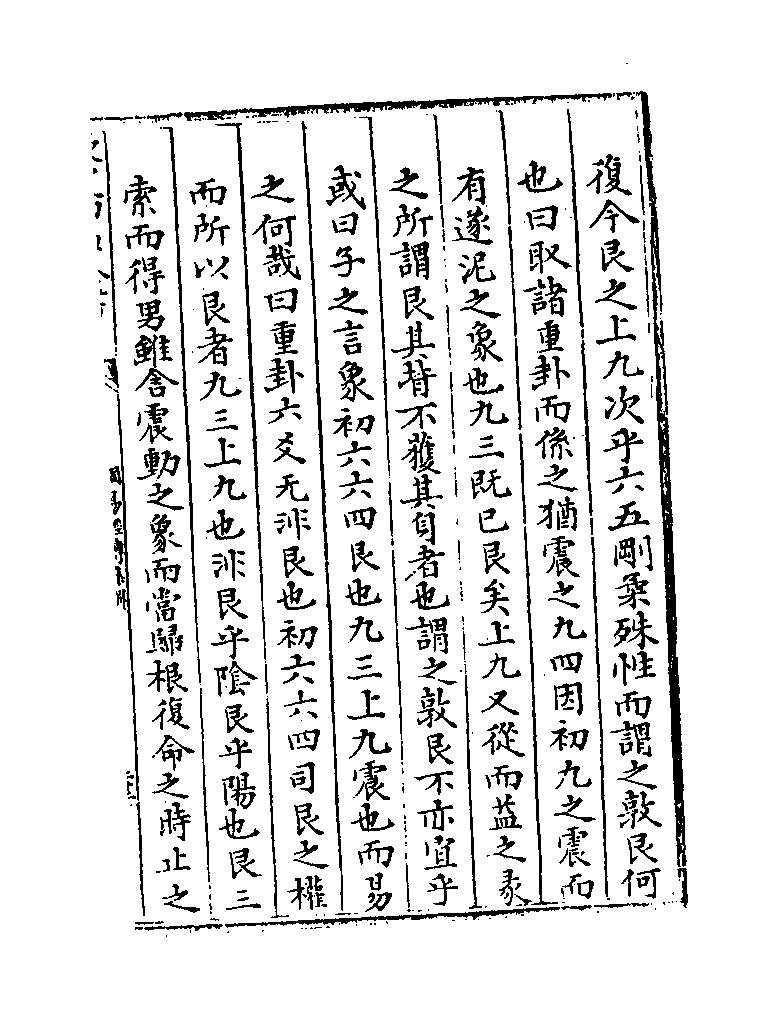 復今艮之上九次乎六五剛柔殊性而謂之敦艮何
也曰取諸重卦而係之猶震之九四因初九之震而
有遂泥之象也九三既已艮矣上九又從而益之彖
之所謂艮其背不獲其身者也謂之敦艮不亦宜乎
或曰子之言象初六六四艮也九三上九震也而易
之何哉曰重卦六爻无非艮也初六六四司艮之權
而所以艮者九三上九也非艮乎陰艮乎陽也艮三
索而得男雖含震動之象而當歸根復命之時止之